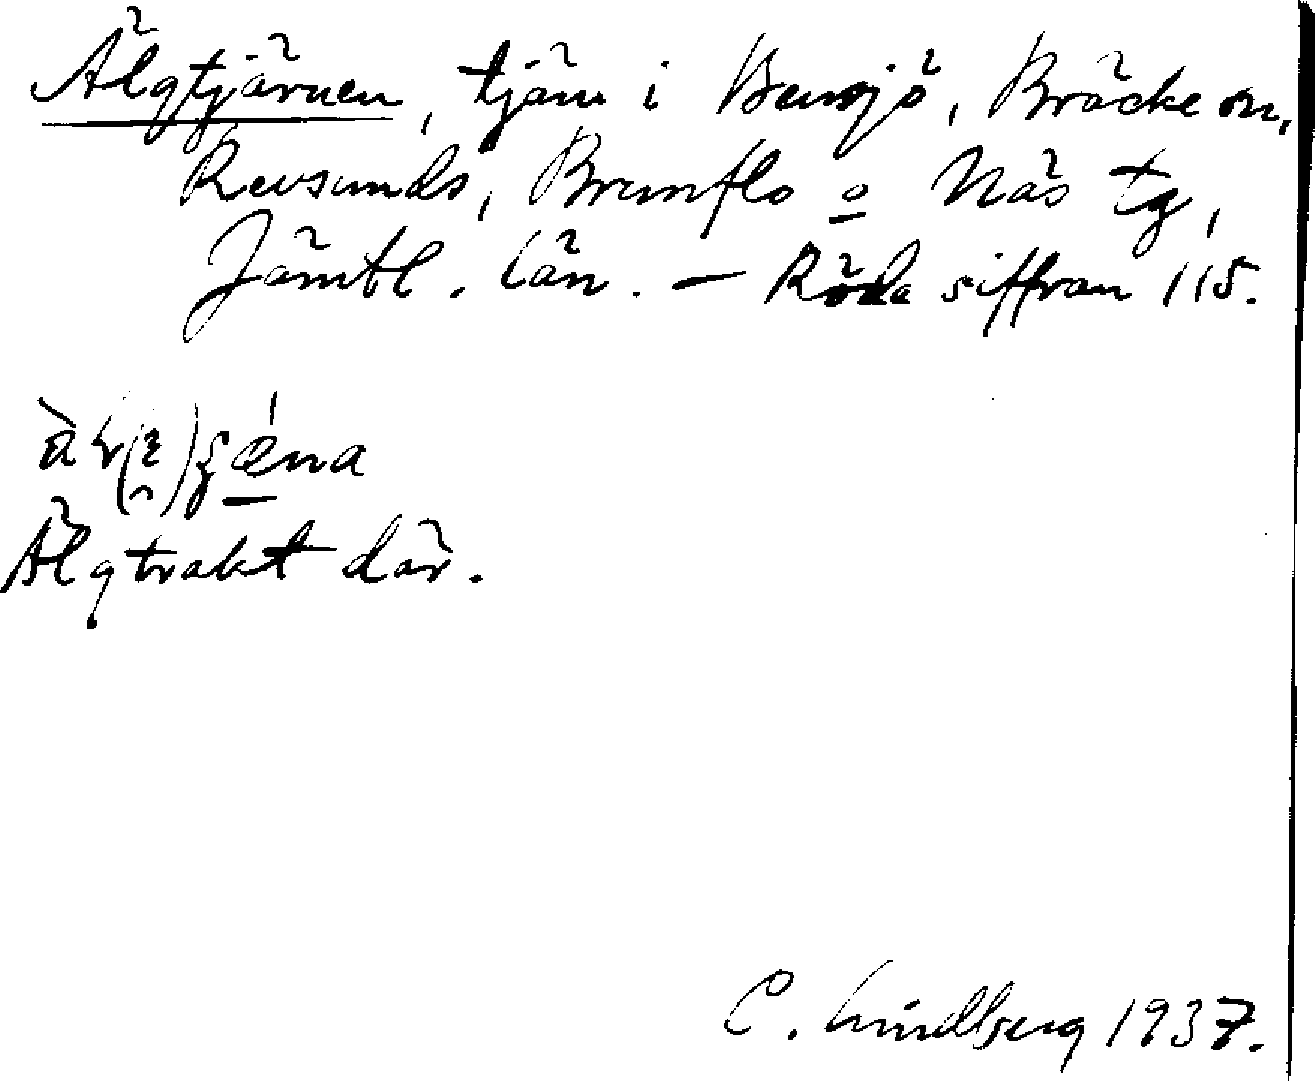 Älgtjärnen, tjärn i Bensjö, Bräcke sn,
Revsunds, Brunflo o Näs tg,
Jämtl. län. – Röda siffran 115.
Älgtrakt där.
C. Lindberg 1937.